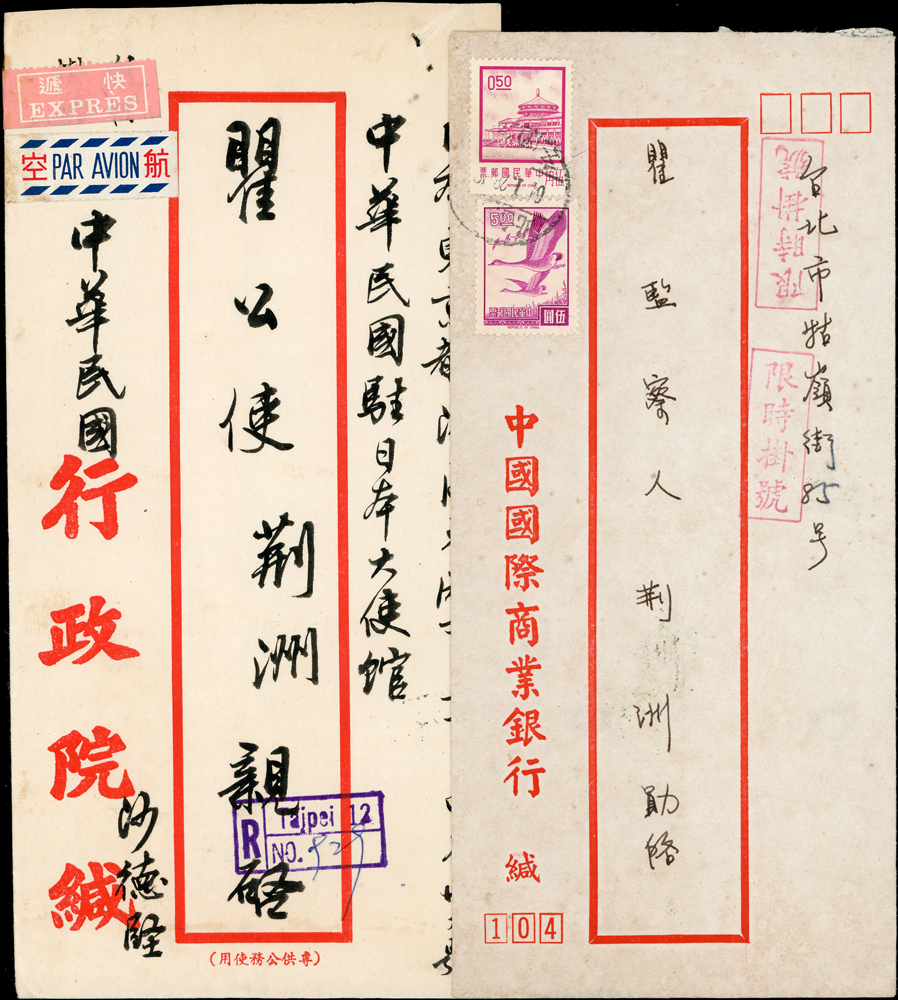 快遞
EXPRÈS
航空
PAR AVION
中華民國駐日本大使館
瞿公使荆洲親啓
中華民國
行政院緘
沙德堅
R
Taipei 12
NO. 929
(專供公務使用)
0.50
中華民國郵票
伍角
REPUBLIC OF CHINA
5.00
中華民國郵票
伍圓
REPUBLIC OF CHINA
台北市牯嶺街85号
限時掛號
限時掛號
瞿監察人荆洲勛啓
中國國際商業銀行
緘
104